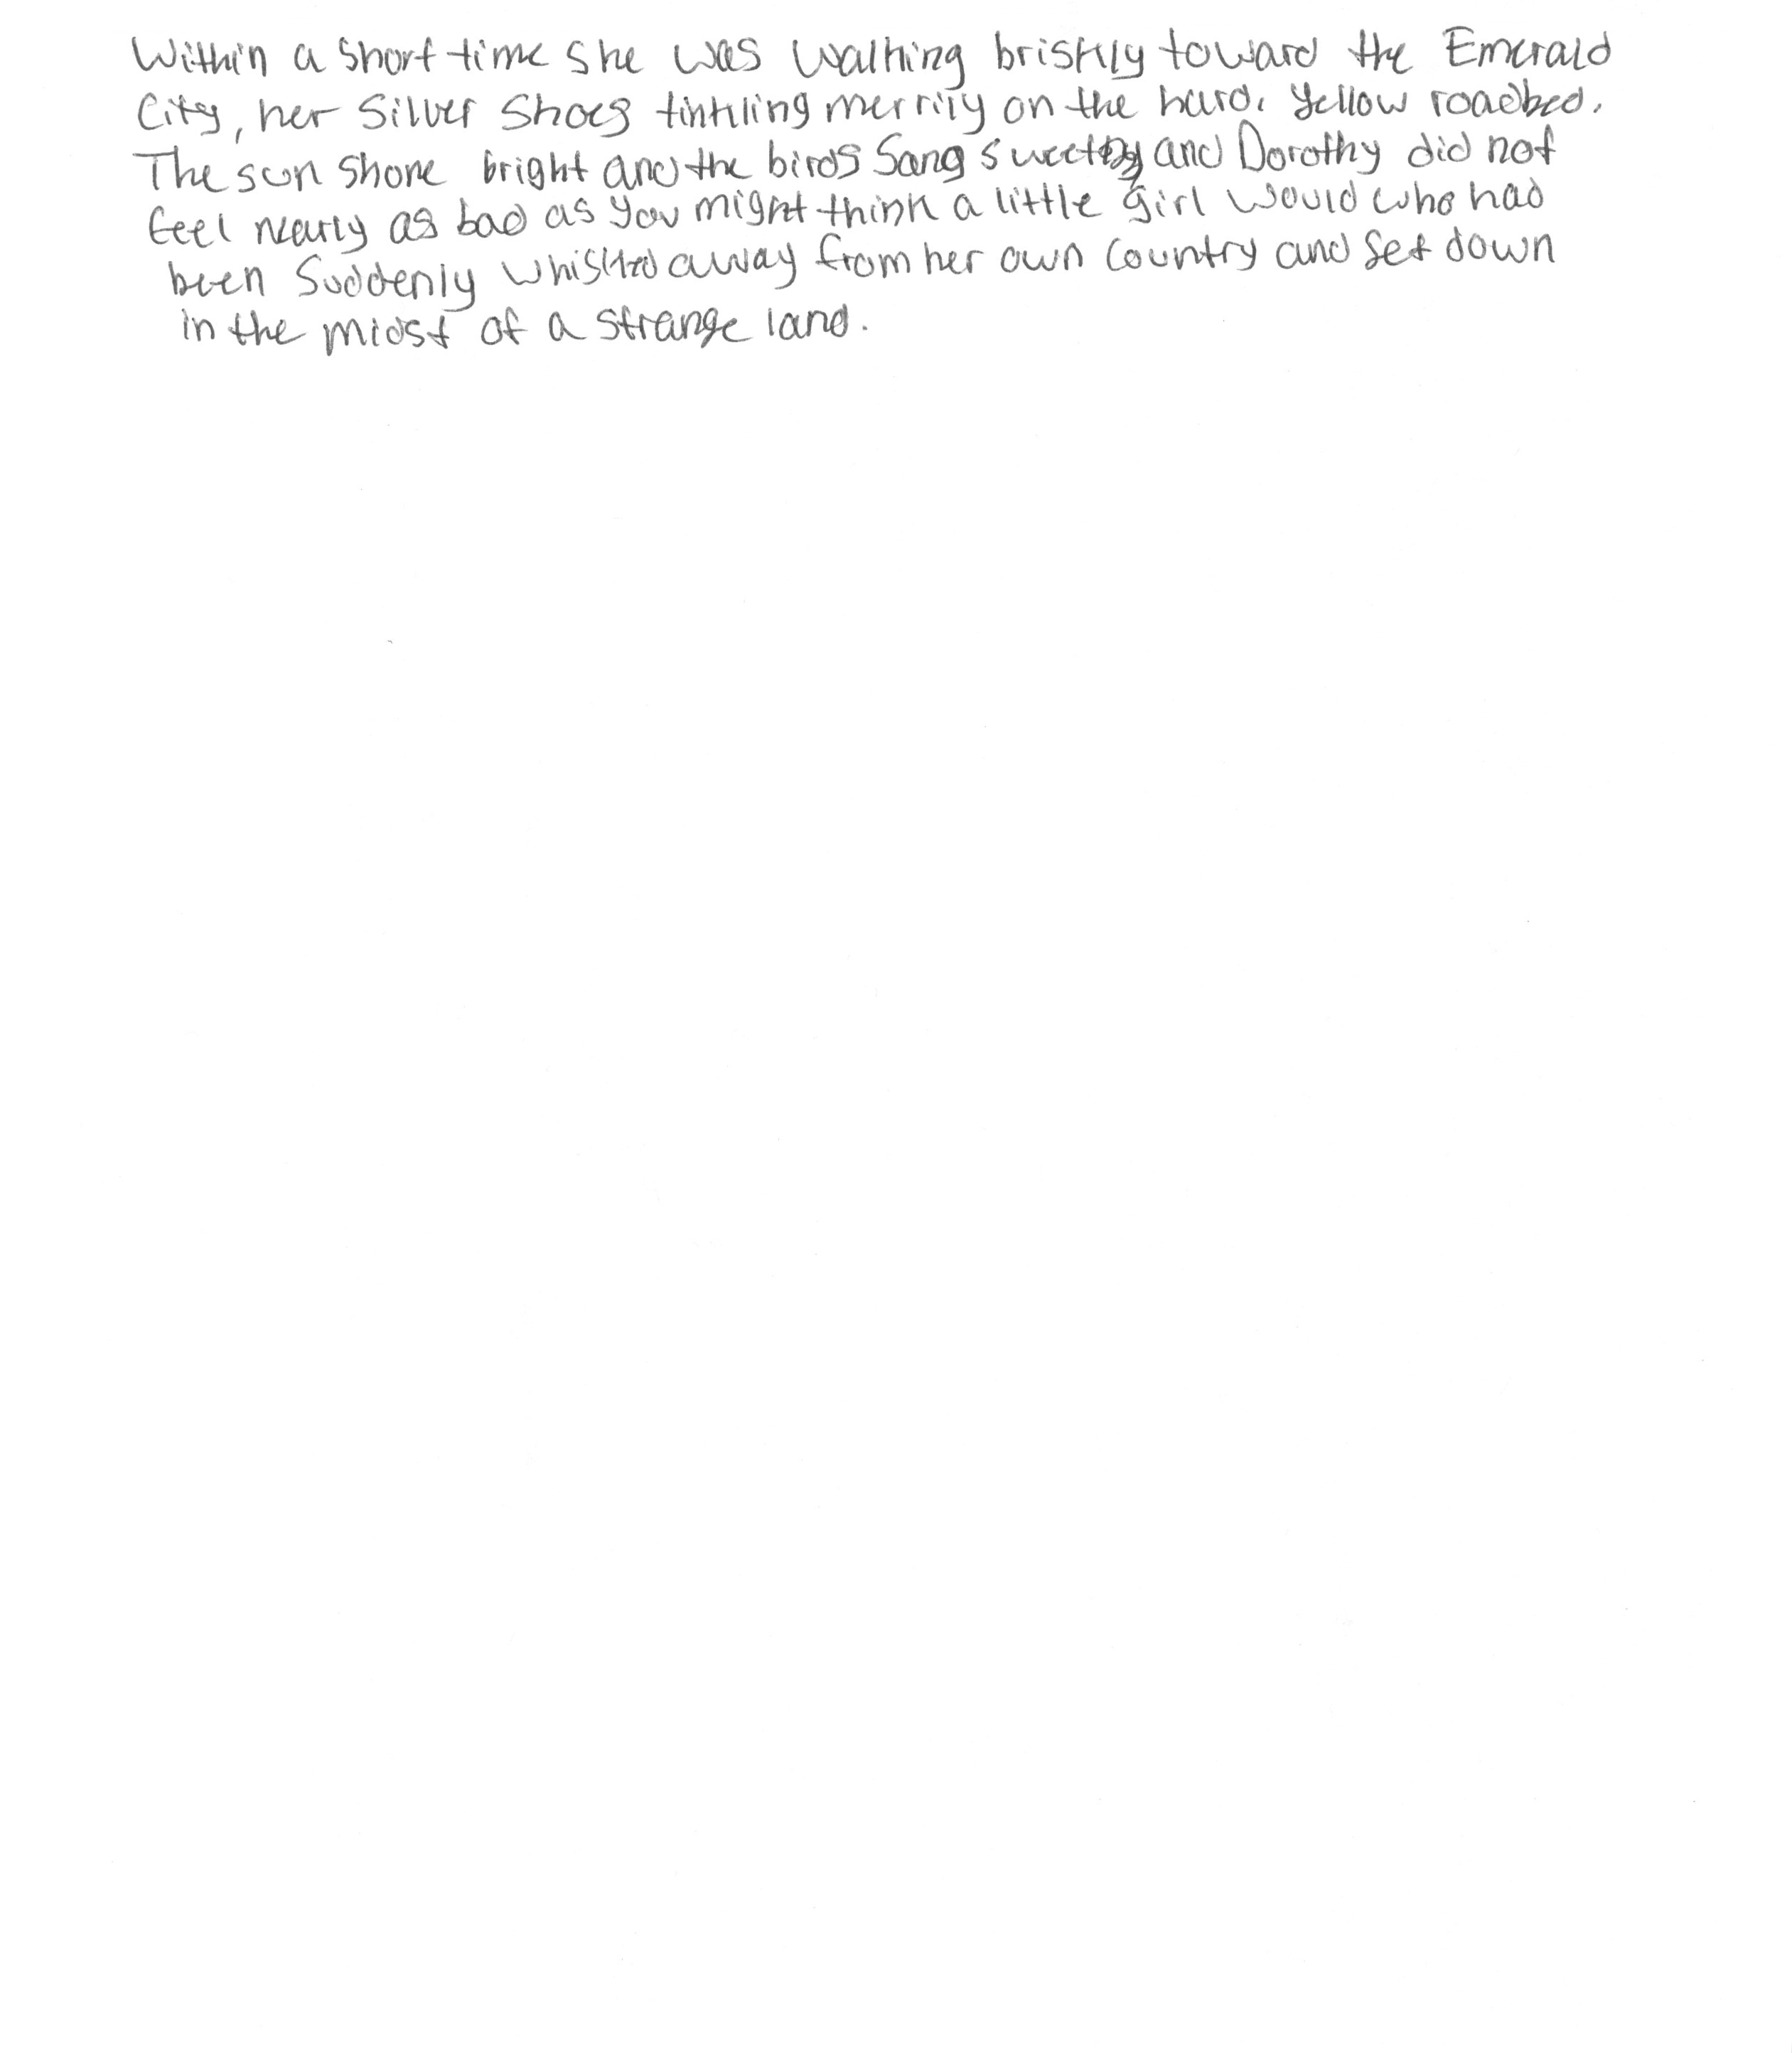 Within a short time she was walking briskly toward the Emerald
City, her Silver Shoes tinkling merrily on the hard, yellow roadbed.
The sun shone bright and the birds sang sweetly and Dorothy did not
feel nearly as bad as you might think a little girl would who had
been suddenly whisked away from her own country and set down
in the midst of a strange land.